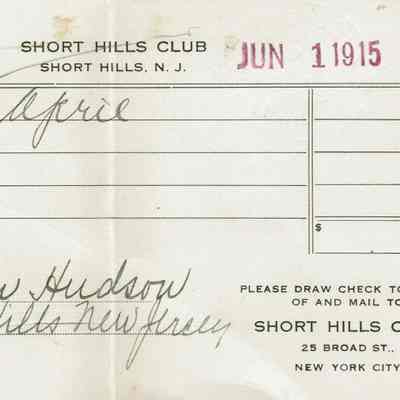 SHORT HILLS CLUB
SHORT HILLS, N. J.
JUN 1 1915
April
$
Hudson
Hills New Jersey
PLEASE DRAW CHECK TO
OF AND MAIL TO
SHORT HILLS C
25 BROAD ST.,
NEW YORK CITY